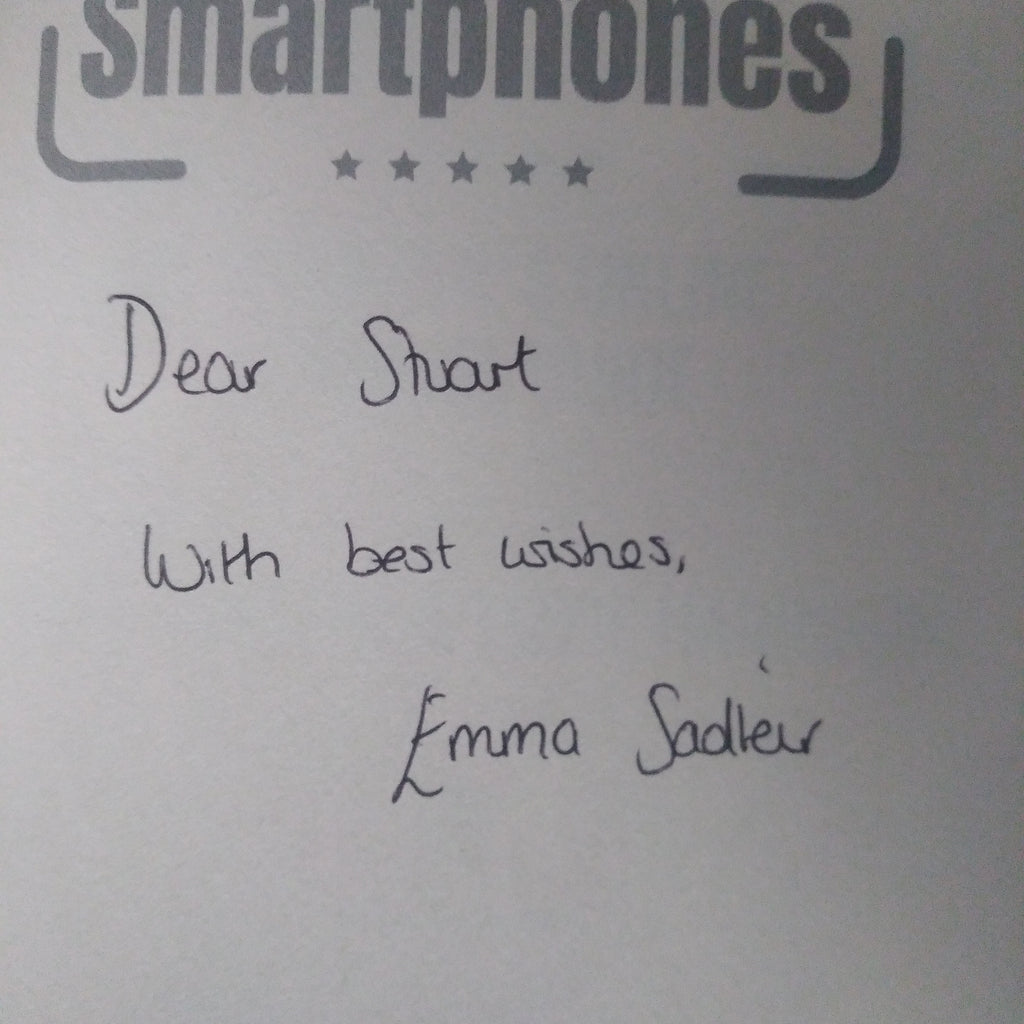 smartphones
Dear Stuart
With best wishes,
Emma Sadleir